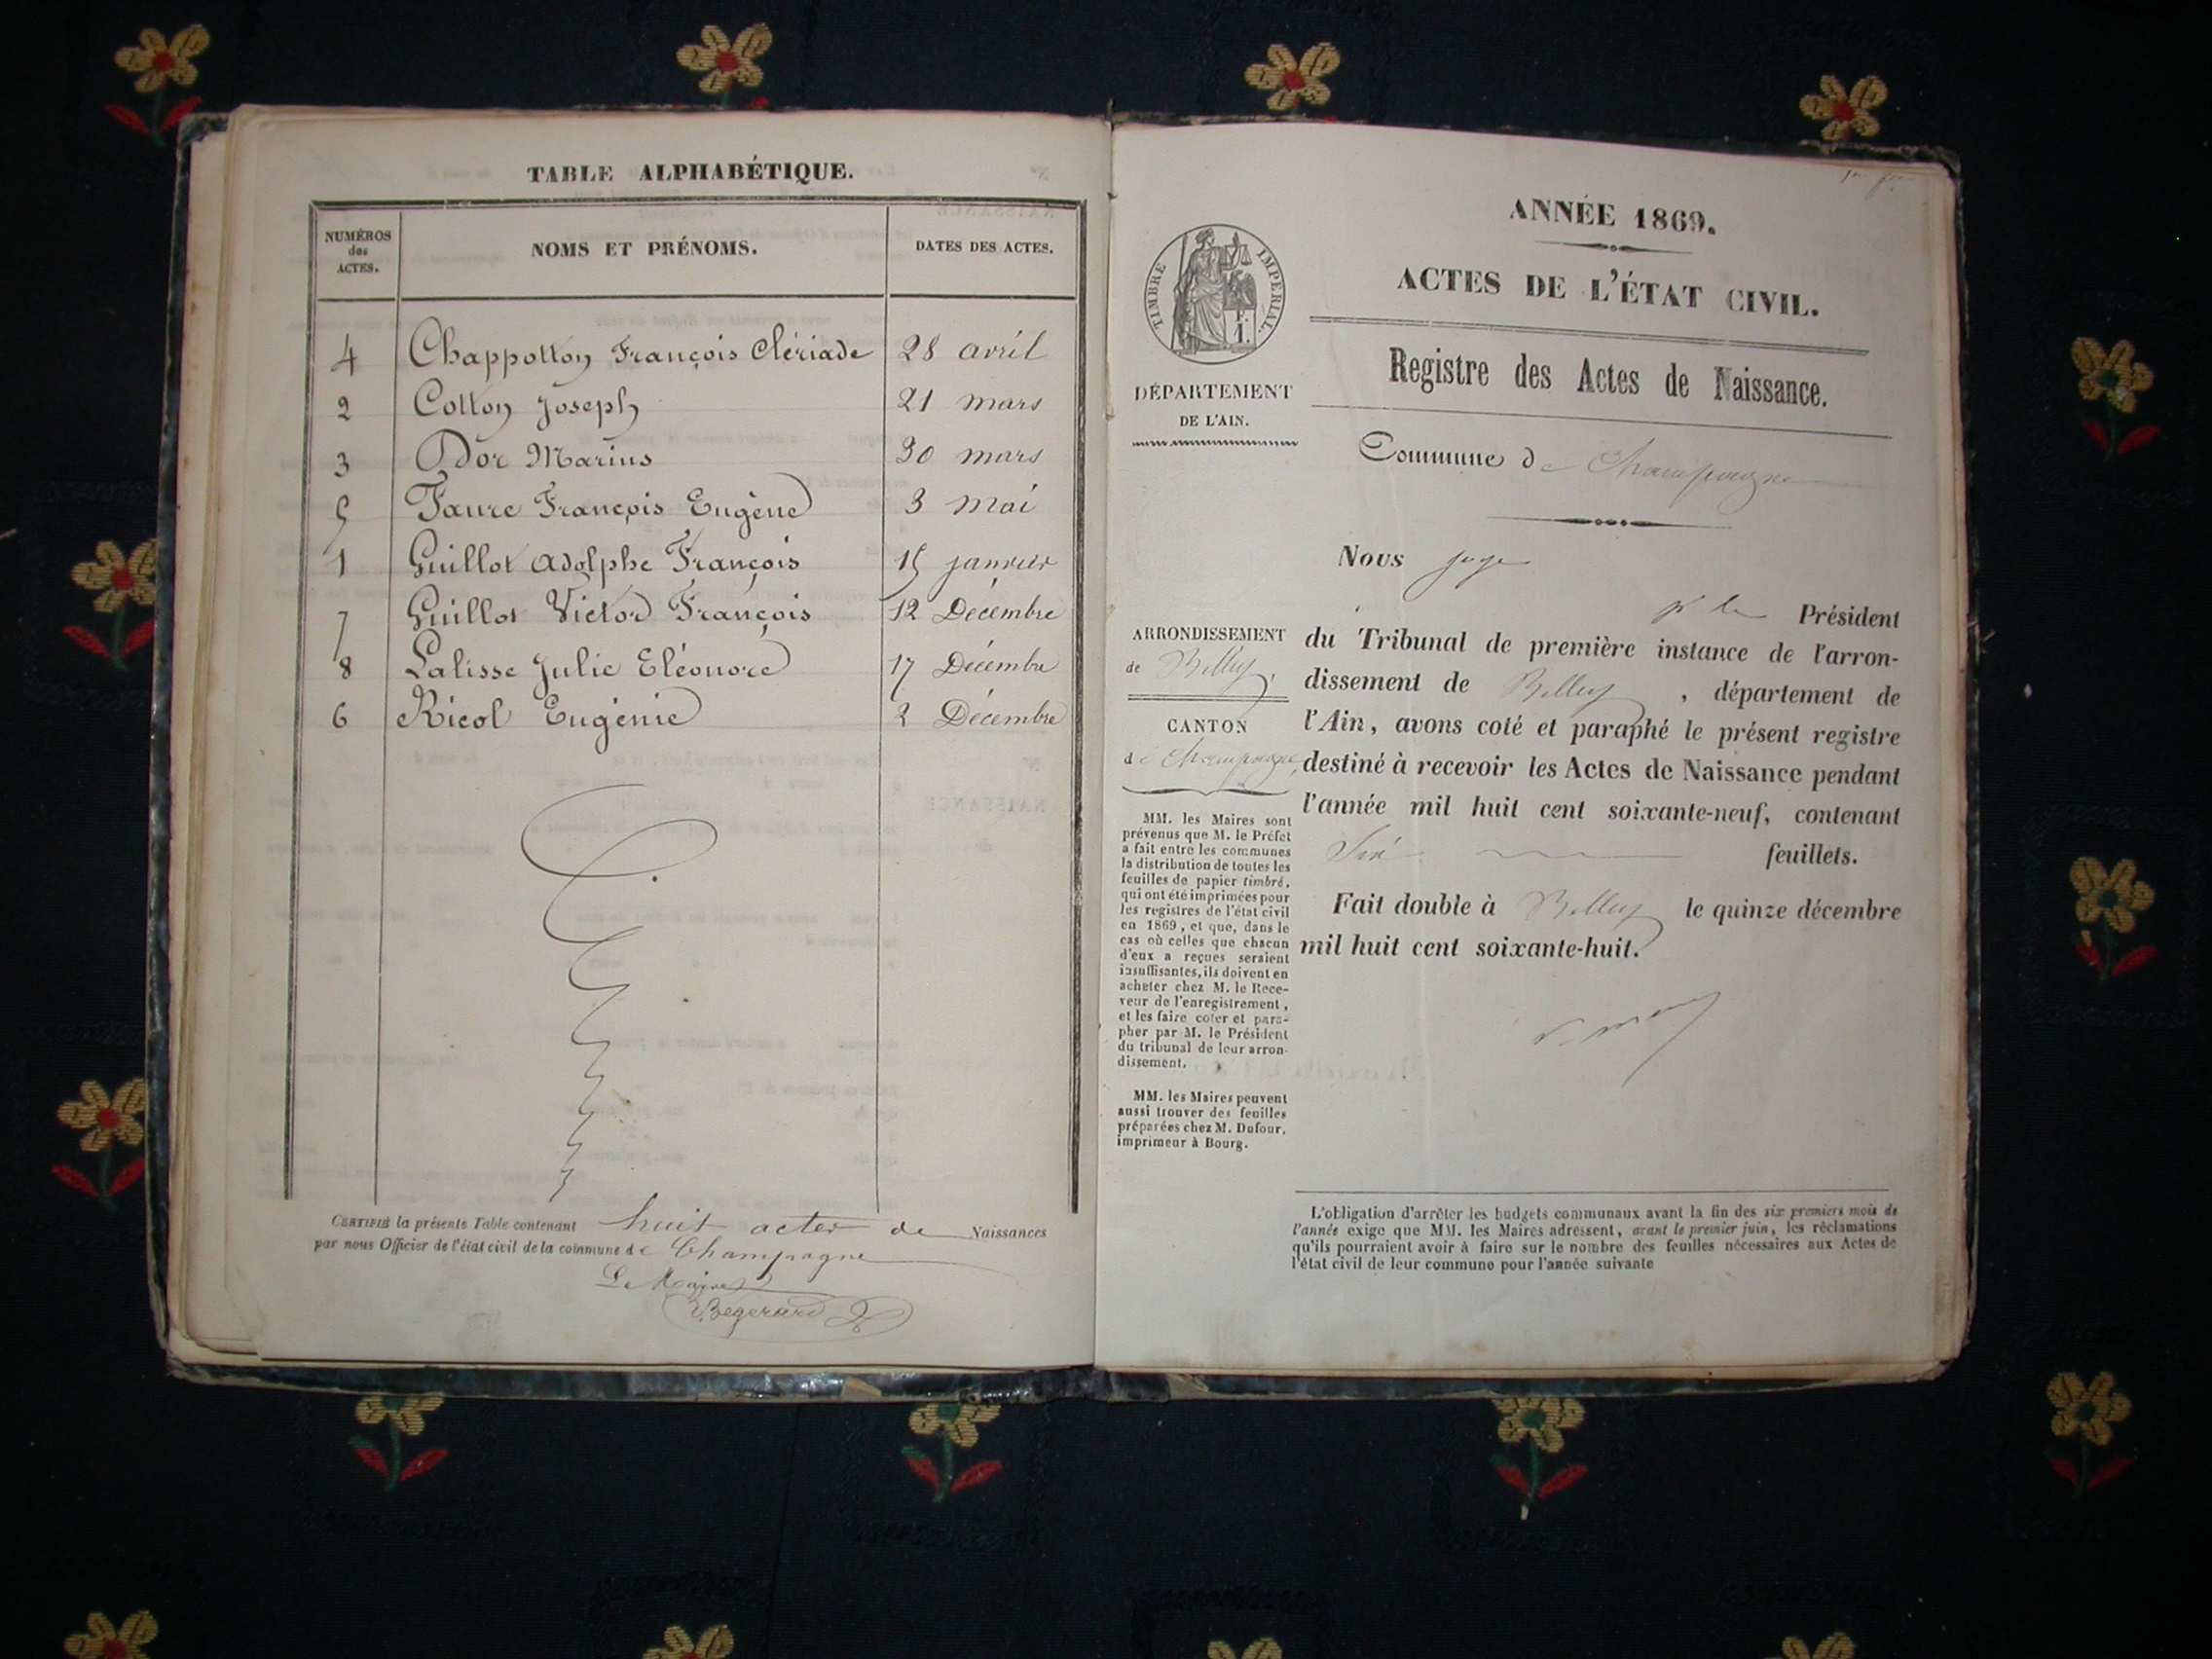 TABLE ALPHABÉTIQUE.
NUMÉROS des ACTES.
NOMS ET PRÉNOMS.
DATES DES ACTES.
4 Chappotton François Clériade 28 avril
2 Cotton Joseph 21 mars
3 Dor Marius 30 mars
5 Faure François Eugène 3 mai
1 Guillot Adolphe François 15 janvier
7 Guillot Victor François 12 Décembre
8 Lalisse Julie Eléonore 17 Décembre
6 Ricol Eugénie 2 Décembre
CERTIFIÉ la présente Table contenant huit actes de Naissances
par nous Officier de l'état civil de la commune de Champagne
Le Maire
ANNÉE 1869.
ACTES DE L'ÉTAT CIVIL.
Registre des Actes de Naissance.
Commune de Champagne
TIMBRE IMPERIAL.
F. 1.
DÉPARTEMENT
DE L'AIN.
ARRONDISSEMENT
de Belley,
CANTON
de Champagne,
MM. les Maires sont
prévenus que M. le Préfet
a fait entre les communes
la distribution de toutes les
feuilles de papier timbré,
qui ont été imprimées pour
les registres de l'état civil
en 1869, et que, dans le
cas où celles que chacun
d'eux a reçues seraient
insuffisantes, ils doivent en
acheter chez M. le Rece-
veur de l'enregistrement,
et les faire coter et para-
pher par M. le Président
du tribunal de leur arron-
dissement.
MM. les Maires peuvent
aussi trouver des feuilles
préparées chez M. Dufour,
imprimeur à Bourg.
Nous juge
pr le Président
du Tribunal de première instance de l'arron-
dissement de Belley, département de
l'Ain, avons coté et paraphé le présent registre
destiné à recevoir les Actes de Naissance pendant
l'année mil huit cent soixante-neuf, contenant
feuillets.
Fait double à Belley le quinze décembre
mil huit cent soixante-huit.
L'obligation d'arrêter les budgets communaux avant la fin des six premiers mois de
l'année exige que MM. les Maires adressent, avant le premier juin, les réclamations
qu'ils pourraient avoir à faire sur le nombre des feuilles nécessaires aux Actes de
l'état civil de leur commune pour l'année suivante